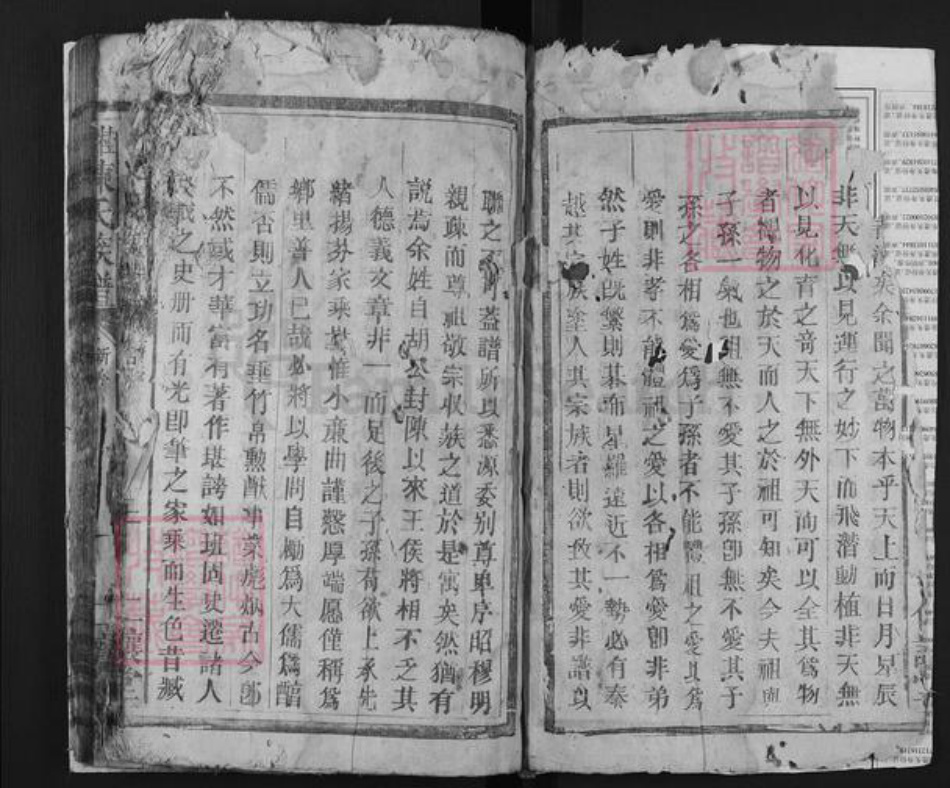 矣余聞之萬物本乎天上而日月星辰
非天無以見運行之妙下而飛潛動植非天無
以見化育之奇天下無外天而可以全其為物
者視物之於天而人之於祖可知矣今夫祖與
子孫一氣也祖無不愛其子孫卽無不愛其子
孫之各相為愛為子孫者不能體祖之愛其為
愛則非孝不能體祖之愛以各相為愛卽非弟
然子姓旣繁則碁布星羅遠近不一勢必有秦
越其宗族塗人其宗族者則欲敦其愛非譜以
聯之不可蓋譜所以悉源委别尊卑序昭穆明
親疎而尊祖敬宗收族之道於是寓矣然猶有
説焉余姓自胡公封陳以來王侯將相不乏其
人德義文章非一而足後之子孫苟欲上承先
緒揚芬家乘豈惟小亷曲謹慤厚端愿僅稱為
鄉里善人已哉必將以學問自勵為大儒為醇
儒否則立功名垂竹帛勲猷事業彪炳古今卽
不然或才華富有著作堪誇如班固史遷諸人
之史册而有光卽筆之家乘而生色昔臧
陳氏族譜